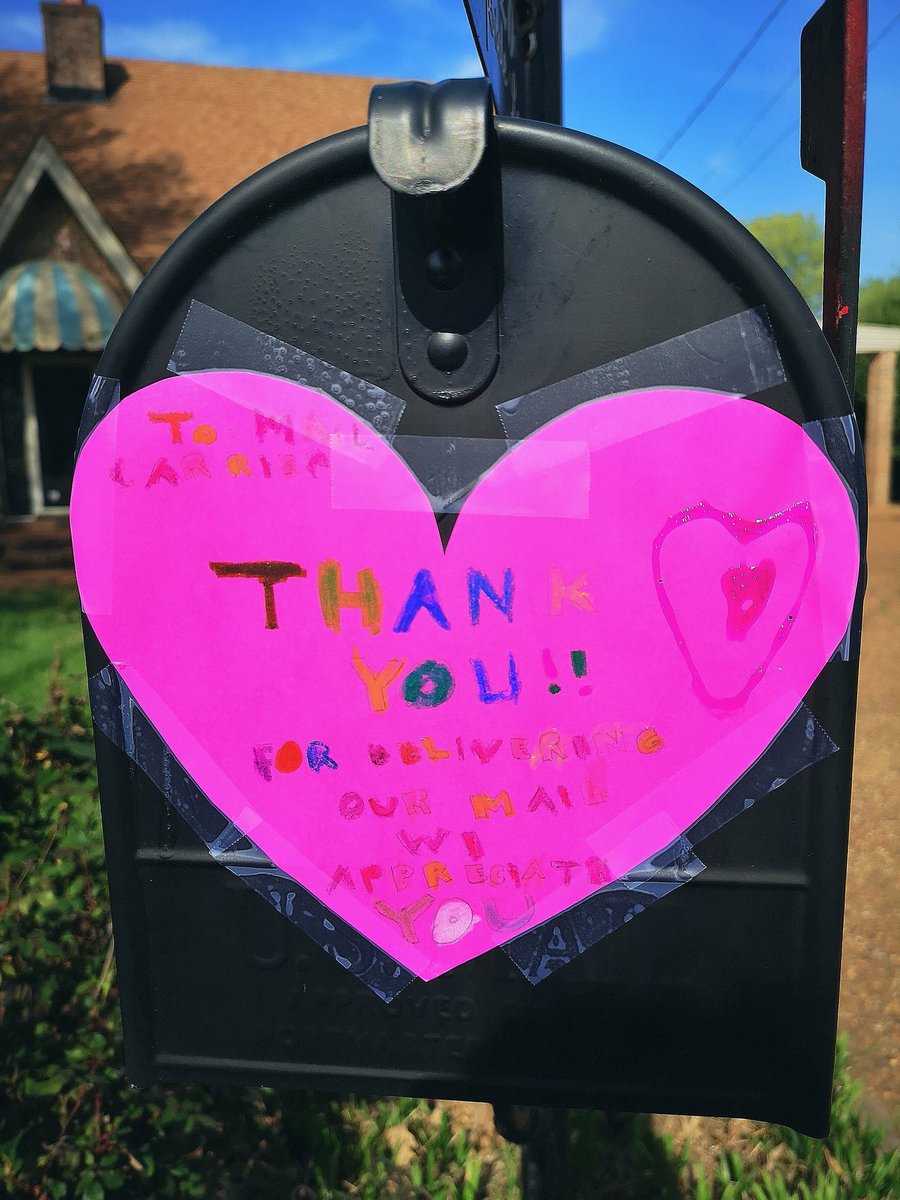 TO MAIL
CARRIER
THANK
YOU!!
FOR DELIVERING
OUR MAIL
WE
APPRECIATE
YOU
APPROVED